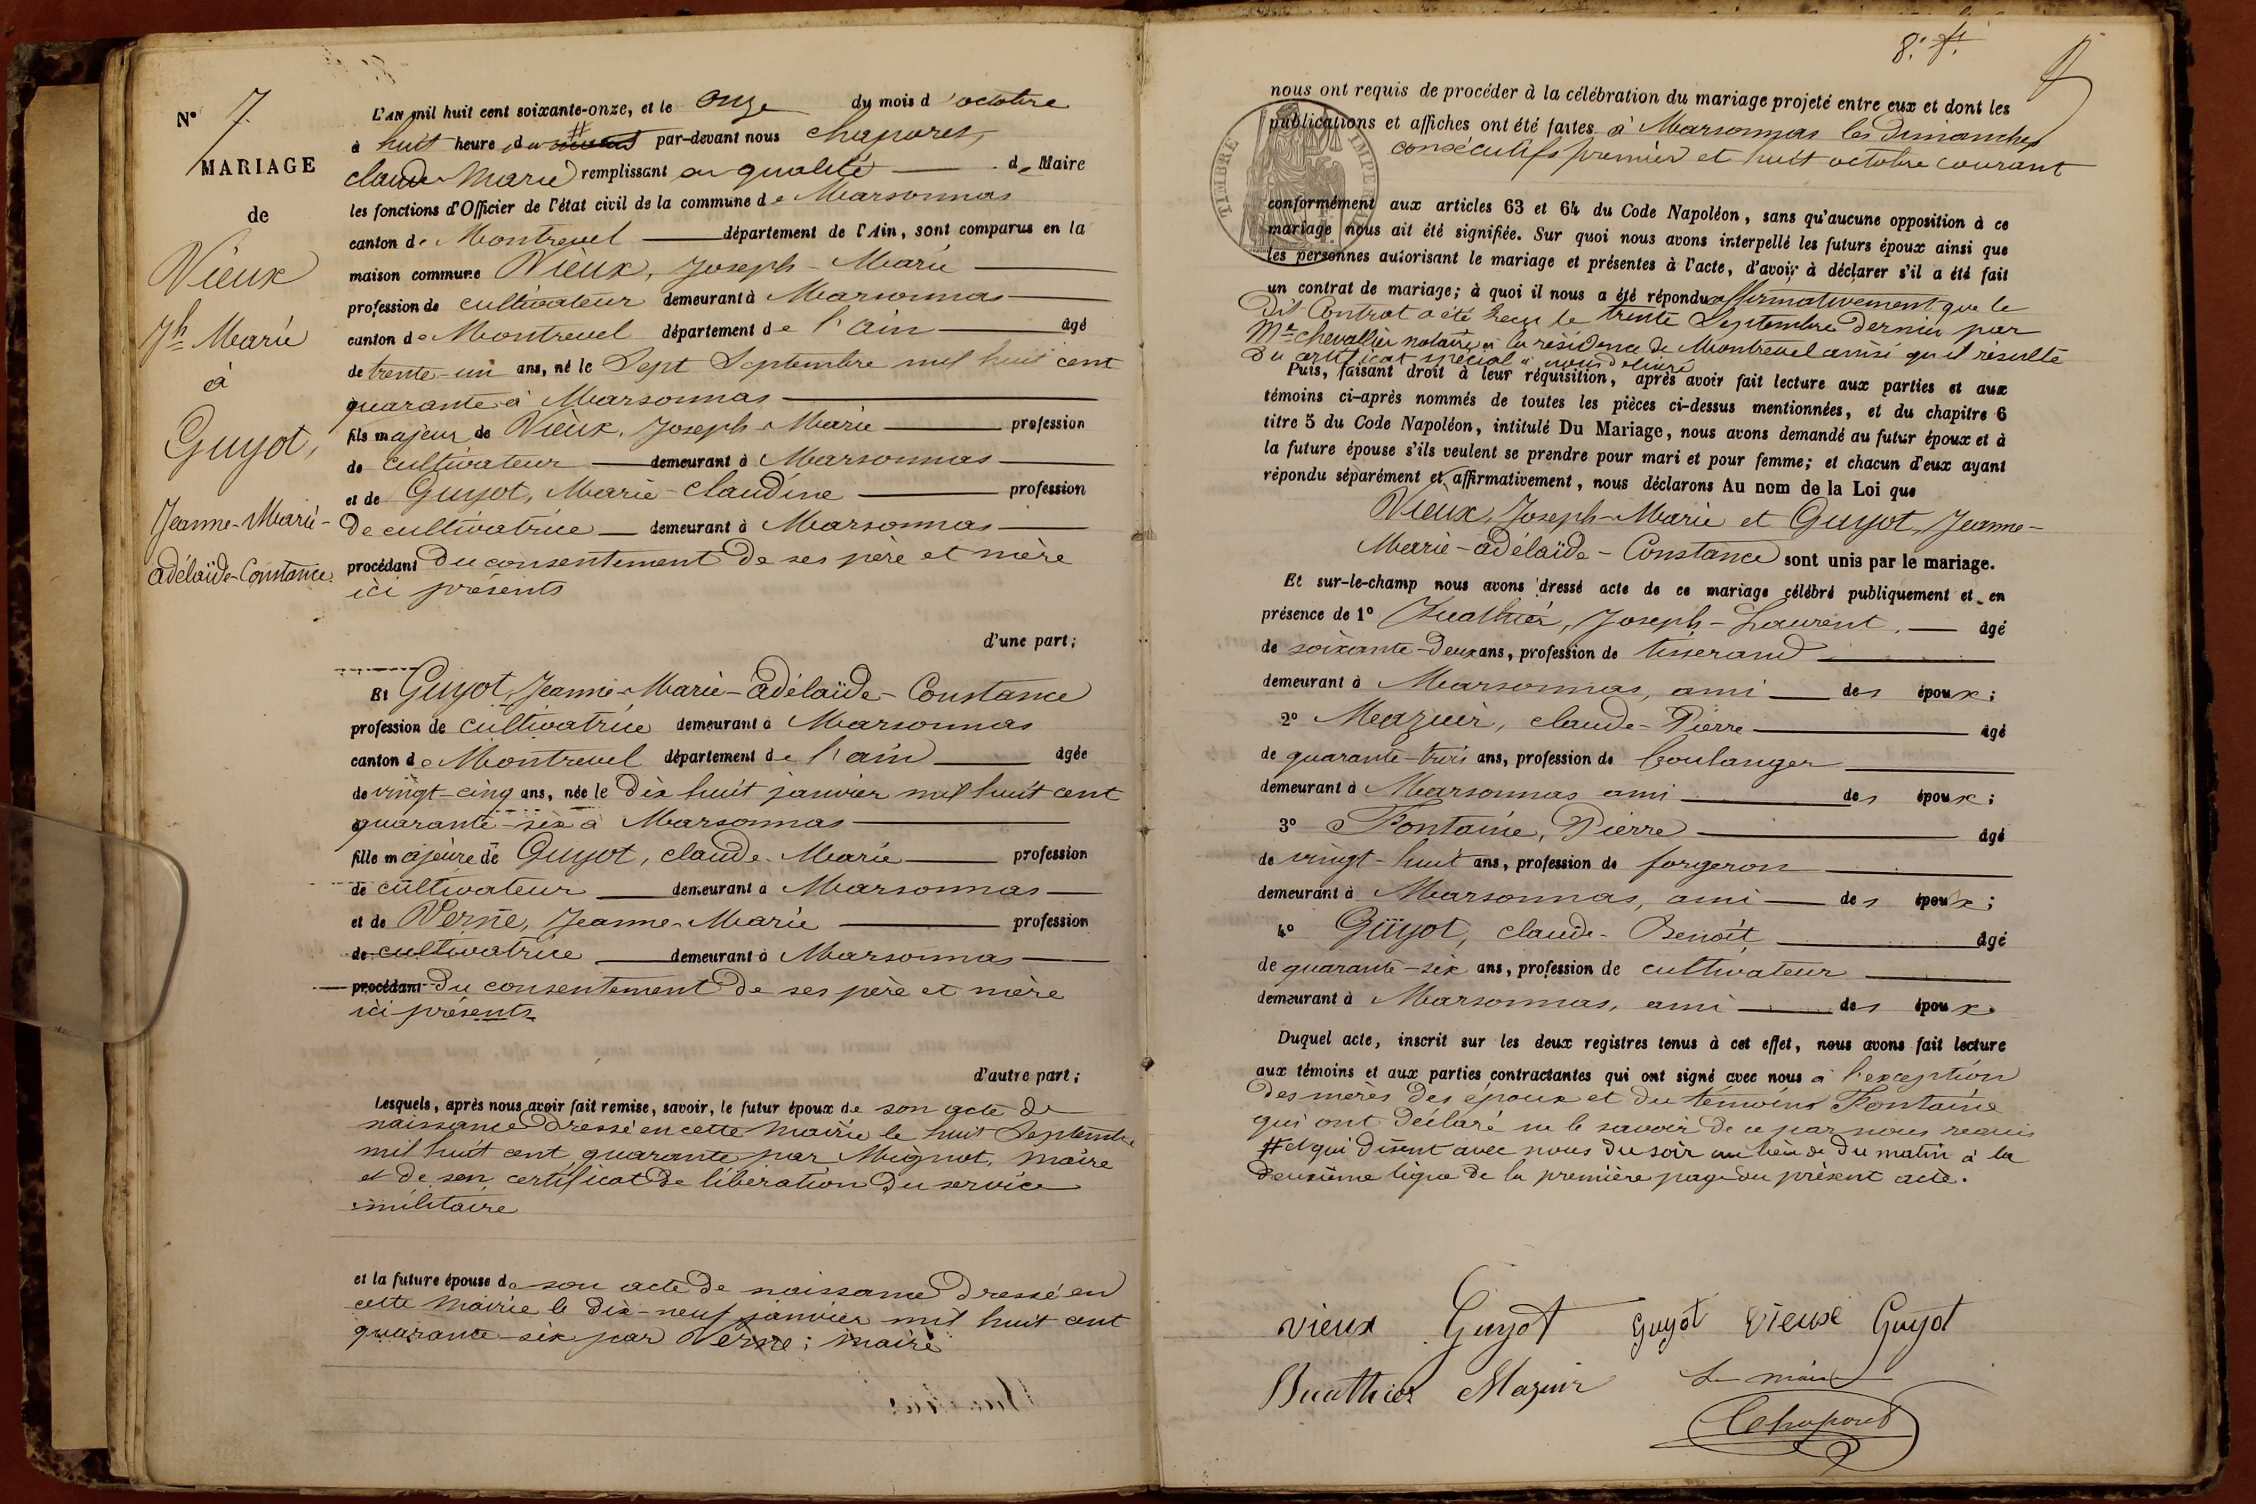 N° 7
MARIAGE
de
Vieux
Jh Marie
à
Guyot,
Jeanne-Marie-
adélaïde-Constance.
L'AN mil huit cent soixante-onze, et le onze du mois d'octobre
à huit heure du # matin par-devant nous chaporet,
claude-Marie remplissant en qualité de Maire
les fonctions d'Officier de l'état civil de la commune de Marsonnas
canton de Montrevel département de l'Ain, sont comparus en la
maison commune Vieux, Joseph-Marie
profession de cultivateur demeurant à Marsonnas
canton de Montrevel département de l'ain âgé
de trente-un ans, né le Sept Septembre mil huit cent
quarante à Marsonnas
fils majeur de Vieux, Joseph-Marie profession
de cultivateur demeurant à Marsonnas
et de Guyot, Marie-claudine profession
De cultivatrice demeurant à Marsonnas
procédant du consentement de ses père et mère
ici présents
d'une part;
Et Guyot, Jeanne-Marie-adélaïde-Constance
profession de cultivatrice demeurant à Marsonnas
canton de Montrevel département de l'ain âgée
de vingt-cinq ans, née le dix huit janvier mil huit cent
quarante-six à Marsonnas
fille majeure de Guyot, claude-Marie profession
de cultivateur demeurant à Marsonnas
et de Verne, Jeanne-Marie profession
de cultivatrice demeurant à Marsonnas
procédant du consentement de ses père et mère
ici présents
d'autre part;
Lesquels, après nous avoir fait remise, savoir, le futur époux de son acte de
naissance dressé en cette Mairie le huit Septembre
mil huit cent quarante par Mignot, maire
et de son certificat de libération du service
militaire
et la future épouse de son acte de naissance dressé en
cette Mairie le dix-neuf janvier mil huit cent
quarante-six par Verne; maire
8e ft
nous ont requis de procéder à la célébration du mariage projeté entre eux et dont les
publications et affiches ont été faites à Marsonnas les dimanches
consécutifs premier et huit octobre courant
TIMBRE IMPERIAL
conformément aux articles 63 et 64 du Code Napoléon, sans qu'aucune opposition à ce
mariage nous ait été signifiée. Sur quoi nous avons interpellé les futurs époux ainsi que
les personnes autorisant le mariage et présentes à l'acte, d'avoir à déclarer s'il a été fait
un contrat de mariage; à quoi il nous a été répondu affirmativement que le
dit Contrat a été reçu le trente Septembre dernier par
Me Chevallier notaire à la résidence de Montrevel ainsi qu'il résulte
du certificat spécial à nous délivré
Puis, faisant droit à leur réquisition, après avoir fait lecture aux parties et aux
témoins ci-après nommés de toutes les pièces ci-dessus mentionnées, et du chapitre 6
titre 5 du Code Napoléon, intitulé Du Mariage, nous avons demandé au futur époux et à
la future épouse s'ils veulent se prendre pour mari et pour femme; et chacun d'eux ayant
répondu séparément et affirmativement, nous déclarons Au nom de la Loi que
Vieux, Joseph-Marie et Guyot, Jeanne-
Marie-adélaïde-Constance sont unis par le mariage.
Et sur-le-champ nous avons dressé acte de ce mariage célébré publiquement et en
présence de 1° Buathier, Joseph-Laurent, âgé
de soixante-deux ans, profession de tisserand
demeurant à Marsonnas, ami des époux;
2° Mazuir, claude-Pierre âgé
de quarante-trois ans, profession de boulanger
demeurant à Marsonnas ami des époux;
3° Fontaine, Pierre âgé
de vingt-huit ans, profession de forgeron
demeurant à Marsonnas, ami des époux;
4° Guyot, claude-Benoît âgé
de quarante-six ans, profession de cultivateur
demeurant à Marsonnas, ami des époux.
Duquel acte, inscrit sur les deux registres tenus à cet effet, nous avons fait lecture
aux témoins et aux parties contractantes qui ont signé avec nous à l'exception
des mères des époux et du témoins Fontaine
qui ont déclaré ne le savoir de ce par nous requis
# et qui disent avec nous du soir au lieu de du matin à la
deuxième ligne de la première page du présent acte.
vieux Guyot Guyot vieux Guyot
Buathier Mazuir Le maire
Chaporet